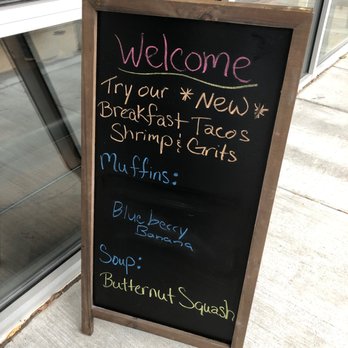 Welcome
Try our *New*
Breakfast Tacos
Shrimp & Grits
Muffins:
Blueberry
Banana
Soup:
Butternut Squash